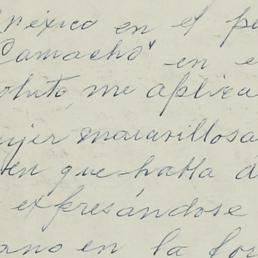 México en el pe
Camacho" en e
me aplica
ujer maravillosa
en que habla d
expresándose
ano en la for